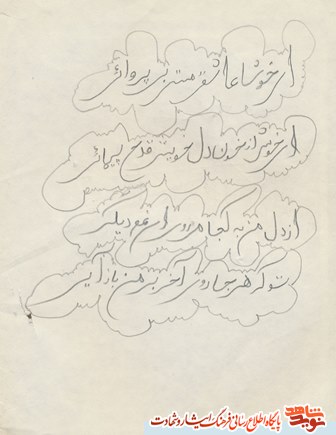 ای خوشا عاشقی مستی بی پروائی
ای خوش از خون دل خویش قدح پیمائی
از دل من به کجا میروی ای غم دیگر
تو که هر جا روی آخر بر من باز آیی
نوید شاهد
پایگاه اطلاع رسانی فرهنگ ایثار و شهادت